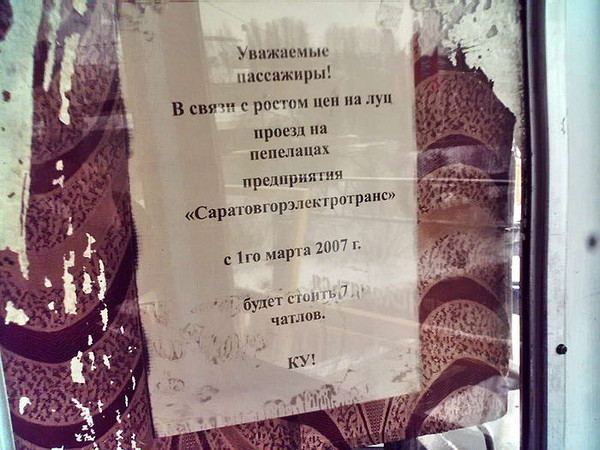 Уважаемые
пассажиры!
В связи с ростом цен на луц
проезд на
пепелацах
предприятия
«Саратовгорэлектротранс»
с 1го марта 2007 г.
будет стоить 7
чатлов.
КУ!